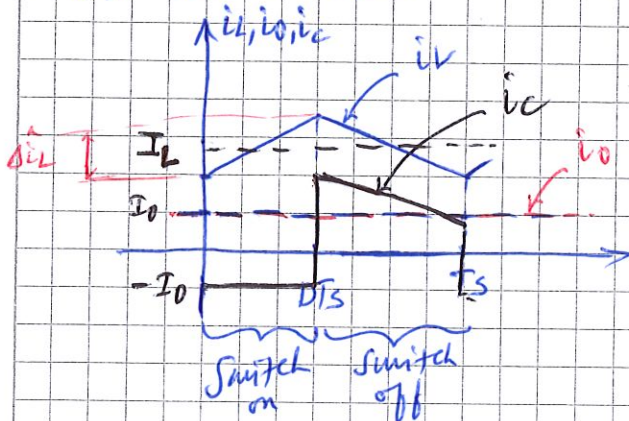 iL, io, ic
iL
ic
ΔiL
IL
io
Io
-Io
DTs
Ts
Switch on
Switch off